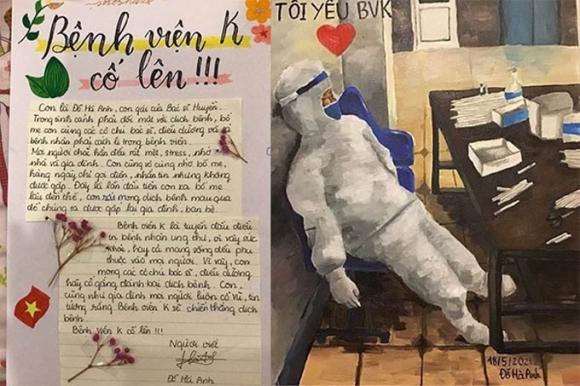 Bệnh viện K
cố lên!!!
Con là Đỗ Hà Anh, con gái của Bác sĩ Huyền.
Trong tình cảnh phải đối mặt với dịch bệnh, bố
mẹ con cùng các cô chú bác sĩ, điều dưỡng và
bệnh nhân phải cách li trong bệnh viện.
Mọi người chắc hẳn đều rất mệt, stress, nhớ
nhà và gia đình. Con cũng vô cùng nhớ bố mẹ,
hàng ngày chỉ gọi điện, nhắn tin nhưng không
được gặp. Đây là lần đầu tiên con xa bố mẹ
lâu đến thế, con rất mong dịch bệnh mau qua
để chúng ta được gặp lại gia đình, bạn bè.
Bệnh viện K là tuyến đầu điều
bệnh nhân ung thư, vì vậy sức
khoẻ, hay cả mạng sống đều phụ
thuộc vào mọi người. Vì vậy, con
mong các cô chú bác sĩ, điều dưỡng
hãy cố gắng đánh bại dịch bệnh. Con,
cũng như gia đình mọi người luôn cổ vũ, tin
tưởng rằng Bệnh viện K sẽ chiến thắng dịch
bệnh.
Bệnh viện K cố lên!!!
Người viết
Đỗ Hà Anh
TÔI YÊU BVK
18/5/2021
Đỗ Hà Anh